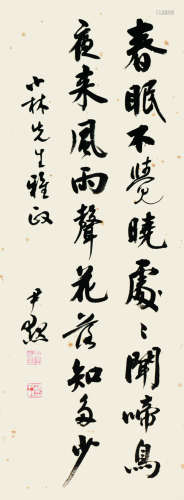 春眠不覺曉處〻聞啼鳥
夜来風雨聲花落知多少
小林先生雅政
尹默